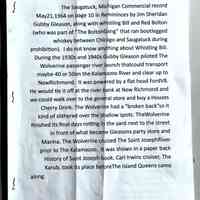 The Saugatuck, Michigan Commercial record
May21,1964 on page 10 in Reminisces by Jim Sheridan
Gubby Gleason, along with whistling Bill and Red Bolton
(who was part of "The BoltonGang" that ran bootlegged
whiskey between Chicago and Saugatuck during
prohibition). I do not know anything about Whistling Bill.
During the 1930s and 1940s Gubby Gleason piloted The
Wolverine passenger river launch thatcould transport
maybe 40 or 50on the Kalamazoo River and clear up to
NewRichmond. It was powered by a flat head FordV8.
He would tie it off at the river bank at New Richmond and
we could walk over to the general store and buy a Hosses
Cherry Drink. The Wolverine had a "broken back"so it
kind of slithered over the shallow spots. TheWolverine
finished its final days rotting in the sand next to the street
in front of what became Gleasons party store and
Marina. The Wolverine cruised The Saint JosephRiver
prior to The Kalamazoo. It was shown in a paper back
History of Saint Joseph book. Carl Irwins cruiser, The
Kandu, took its place beforeThe Island Queens came
along.